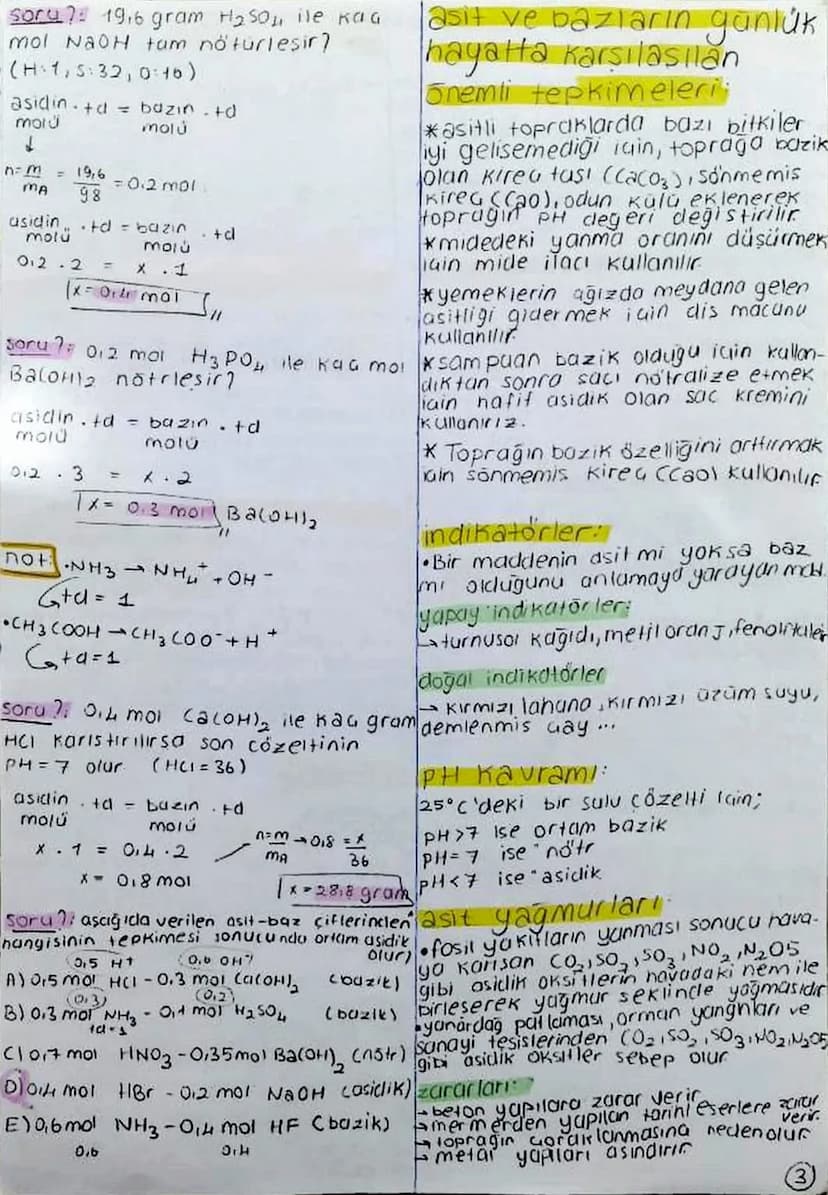 soru?: 19,6 gram H₂SO₄ ile kaç
mol NaOH tam nötürleşir?
(H:1, S:32, O:16)
asidin . td = bazın . td
molü molü
↓
n=m/mA = 19,6/98 = 0,2 mol
asidin . td = bazın . td
molü molü
0,2 . 2 = x . 1
x = 0,4 mol
soru?: 0,2 mol H₃PO₄ ile kaç mol
Ba(OH)₂ nötrleşir?
asidin . td = bazın . td
molü molü
0,2 . 3 = x . 2
x = 0,3 mol Ba(OH)₂
not: •NH₃ → NH₄⁺ + OH⁻
td = 1
•CH₃COOH → CH₃COO⁻ + H⁺
td=1
soru?: 0,4 mol Ca(OH)₂ ile kaç gram
HCl karıştırılırsa son çözeltinin
PH = 7 olur (HCl = 36)
asidin . td = bazın . td
molü molü
x . 1 = 0,4 . 2
x = 0,8 mol
n=m/mA → 0,8 = x/36
x = 28,8 gram
soru?: aşcağıda verilen asit-baz çiflerinden
hangisinin tepkimesi sonucunda ortam asidik
olur?
0,5 H⁺ 0,6 OH⁻
A) 0,5 mol HCl - 0,3 mol Ca(OH)₂ (bazik)
(0,3) (0,2)
B) 0,3 mol NH₃ - 0,1 mol H₂SO₄ (bazik)
td=1
C) 0,7 mol HNO₃ - 0,35 mol Ba(OH)₂ (nötr)
D) 0,4 mol HBr - 0,2 mol NaOH (asidik)
E) 0,6 mol NH₃ - 0,4 mol HF (bazik)
0,6 0,4
asit ve bazların günlük
hayatta karşılaşılan
önemli tepkimeleri:
*asitli topraklarda bazı bitkiler
iyi gelişemediği için, toprağa bazik
olan kireç taşı (CaCO₃), sönmemiş
kireç (CaO), odun külü eklenerek
toprağın PH değeri değiştirilir
*midedeki yanma oranını düşürmek
için mide ilacı kullanılır
*yemeklerin ağızda meydana gelen
asitliği gidermek için diş macunu
kullanılır.
*şampuan bazik olduğu için kullan-
dıktan sonra saçı nötralize etmek
için hafif asidik olan saç kremini
kullanırız.
* Toprağın bazik özelliğini arttırmak
için sönmemiş kireç (CaO) kullanılır
indikatörler:
•Bir maddenin asit mi yoksa baz
mı olduğunu anlamaya yarayan mad.
yapay indikatörler:
→turnusol kağıdı, metil oranj, fenolftalein
doğal indikatörler
→ kırmızı lahana, kırmızı üzüm suyu,
demlenmiş çay ...
PH kavramı:
25°C'deki bir sulu çözelti için;
pH>7 ise ortam bazik
pH=7 ise " nötr
pH<7 ise " asidik
asit yağmurları
•fosil yakıtların yanması sonucu hava-
ya karışan CO₂, SO₂, SO₃, NO₂, N₂O5
gibi asidik oksitlerin havadaki nem ile
birleşerek yağmur şeklinde yağmasıdır
•yanardağ patlaması, orman yangınları ve
sanayi tesislerinden CO₂, SO₂, SO₃, NO₂, N₂O5
gibi asidik oksitler sebep olur
zararları:
→beton yapılara zarar verir
→mermerden yapılan tarihi eserlere zarar
verir.
→toprağın çoraklanmasına neden olur
→metal yapıları aşındırır
3